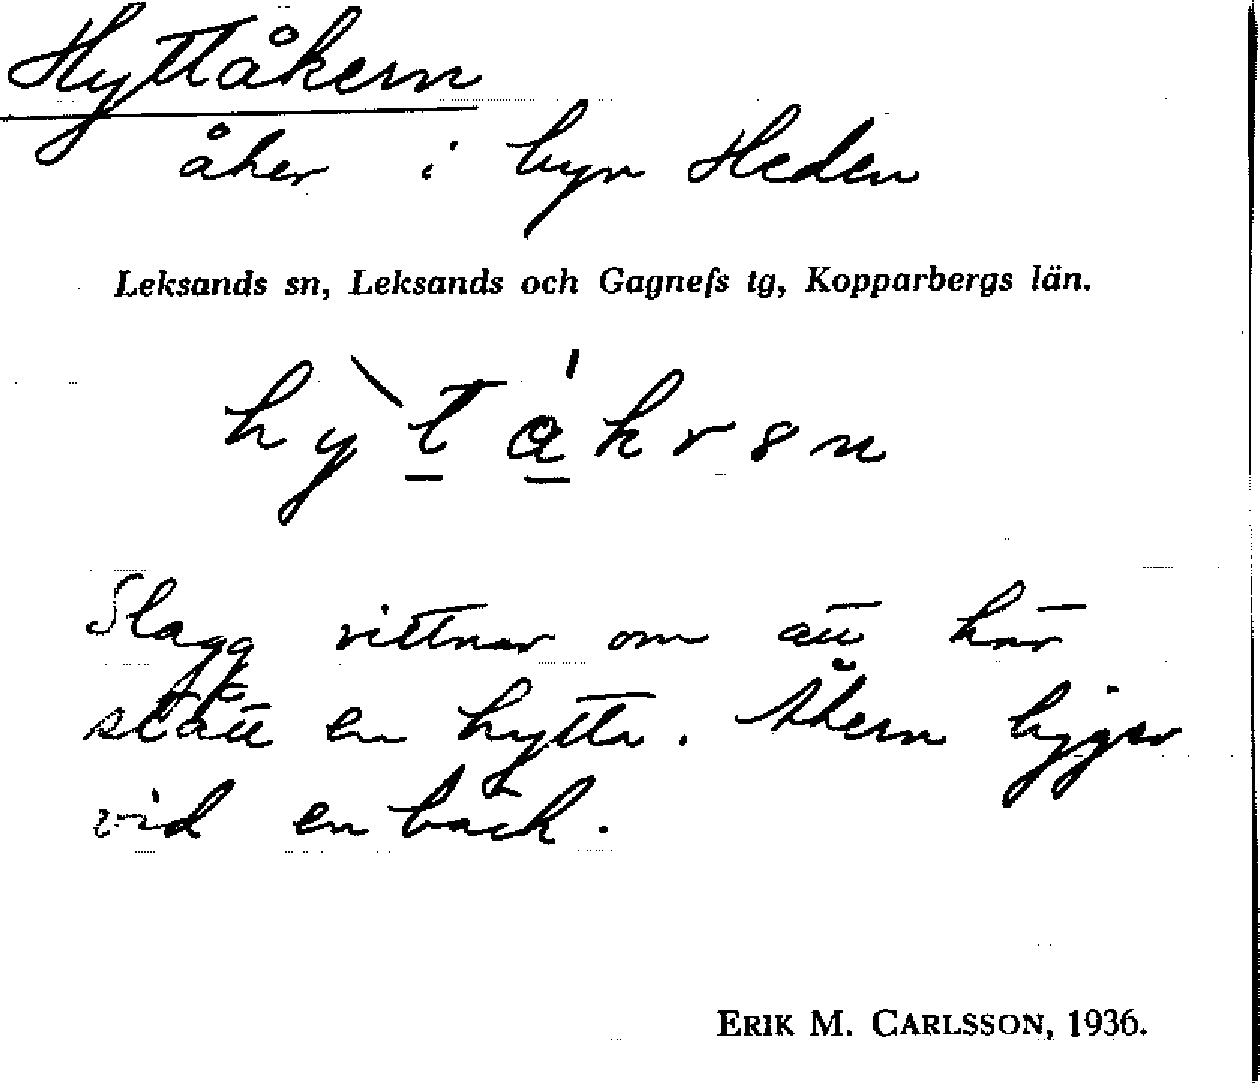 Hyttåkern
åker i byn Heden
Leksands sn, Leksands och Gagnefs tg, Kopparbergs län.
Slagg vittnar om att här
stått en hytta. Åkern ligger
vid en bäck.
ERIK M. CARLSSON, 1936.